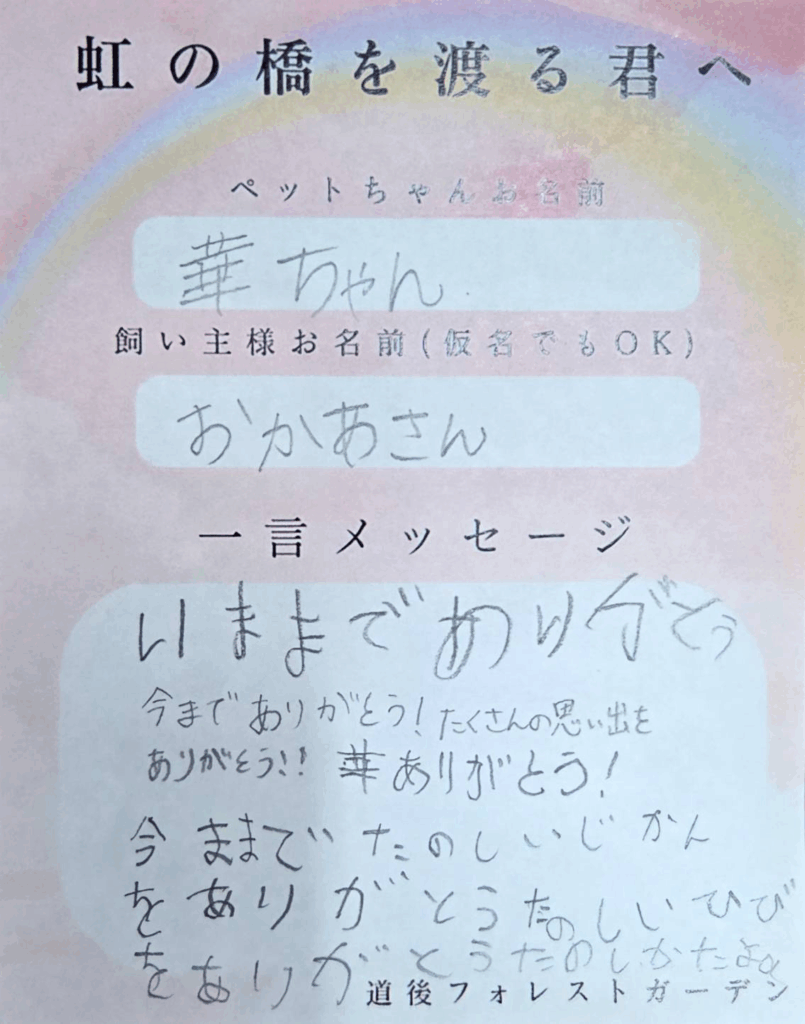 虹の橋を渡る君へ
ペットちゃんお名前
華ちゃん
飼い主様お名前(仮名でもOK)
おかあさん
一言メッセージ
いままでありがとう
今までありがとう!たくさんの思い出を
ありがとう!! 華ありがとう!
今ままでたのしいじかん
をありがとうたのしいひび
をありがとうたのしかたよ。
道後フォレストガーデン